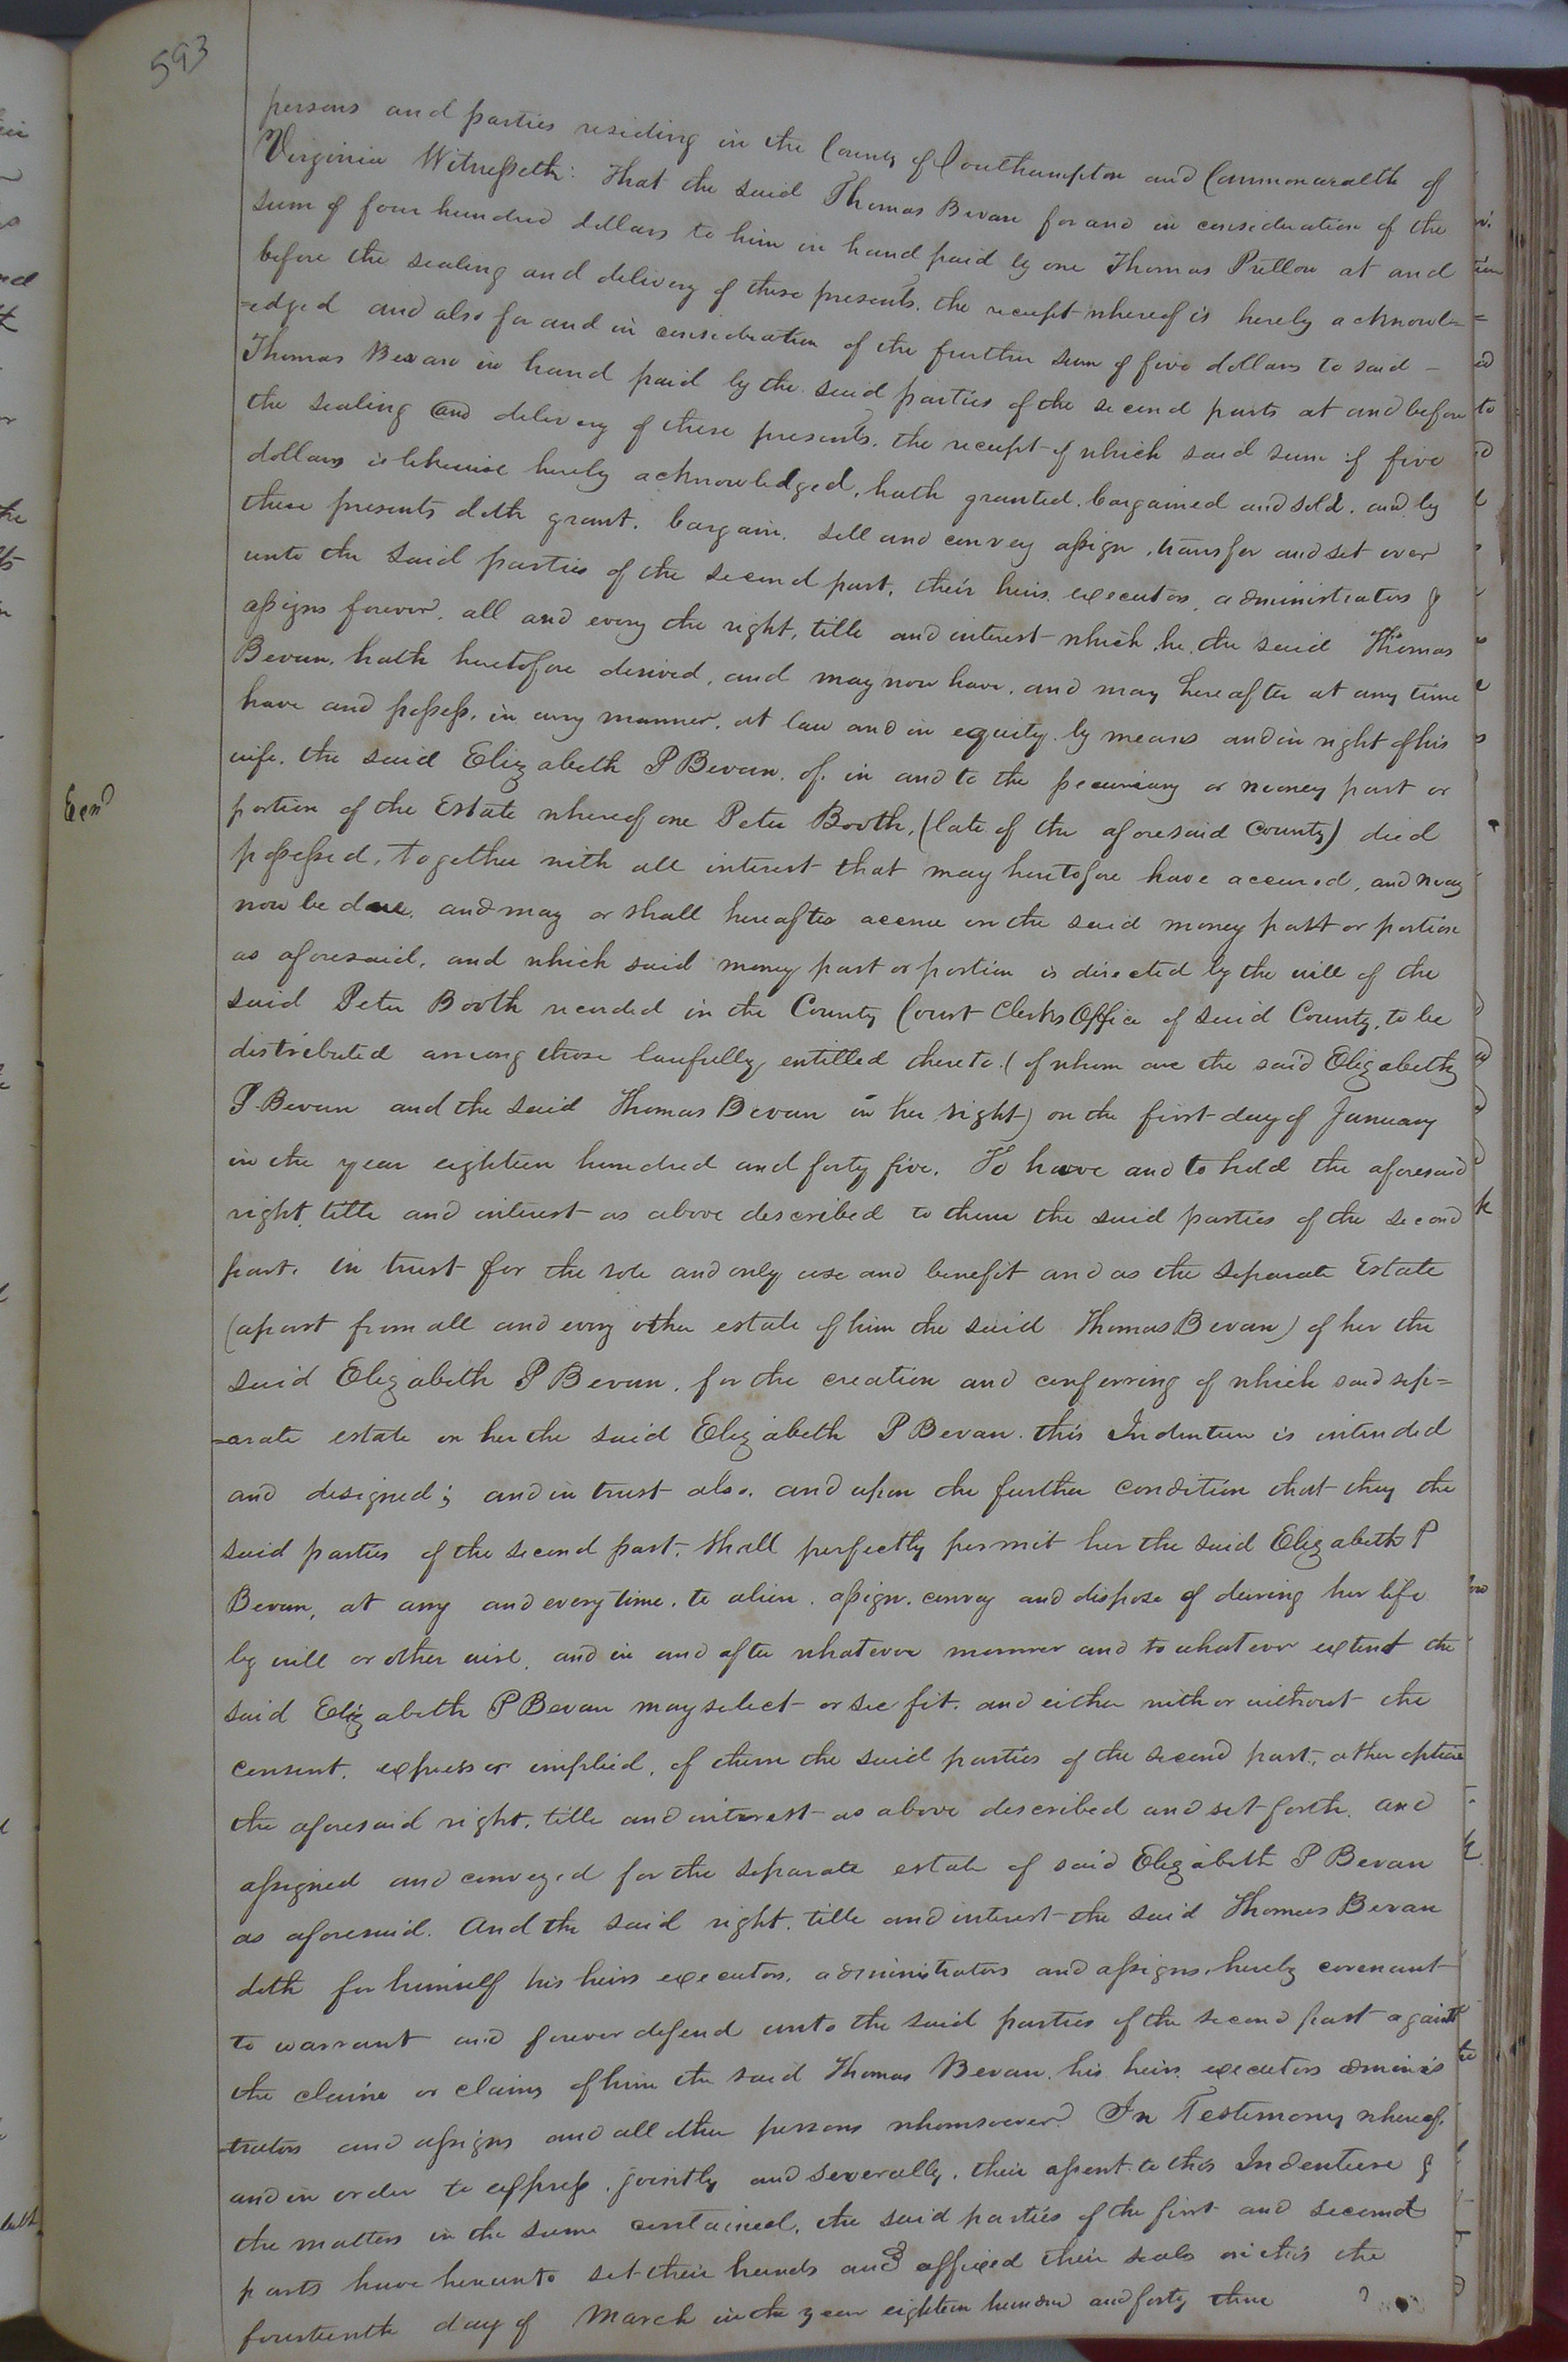 593
persons and parties residing in the County of Southampton and Commonwealth of
Virginia Witnesseth: That the said Thomas Bevan for and in consideration of the
sum of four hundred dollars to him in hand paid by one Thomas Pretlow at and
before the sealing and delivery of these presents, the receipt whereof is hereby acknowl=
=edged and also for and in consideration of the further sum of five dollars to said
Thomas Bevan in hand paid by the said parties of the second parts at and before
the sealing and delivery of these presents, the receipt of which said sum of five
dollars is likewise hereby acknowledged, hath granted, bargained and sold, and by
these presents doth grant, bargain, sell and convey assign, transfer and set over
unto the said parties of the second part, their heirs, executors, administrators &
assigns forever, all and every the right, title and interest which he, the said Thomas
Bevan, hath heretofore derived, and may now have, and may hereafter at any time
have and possess, in any manner, at law and in equity by means and in right of his
wife, the said Elizabeth P Bevan, of, in and to the pecuniary or money part or
portion of the Estate whereof one Peter Booth, (late of the aforesaid County) died
possessed, together with all interest that may heretofore have accrued, and may
now be due, and may or shall hereafter accrue on the said money part or portion
as aforesaid, and which said money part or portion is directed by the will of the
said Peter Booth recorded in the County Court Clerks Office of said County, to be
distributed among those lawfully entitled thereto (of whom are the said Elizabeth
P. Bevan and the said Thomas Bevan in her right) on the first day of January
in the year eighteen hundred and forty five. To have and to hold the aforesaid
right, title and interest as above described to them the said parties of the second
part, in trust for the sole and only use and benefit and as the separate Estate
(apart from all and every other estate of him the said Thomas Bevan) of her the
said Elizabeth P Bevan, for the creation and conferring of which said sep=
=arate estate on her the said Elizabeth P Bevan this Indenture is intended
and designed; and in trust also, and upon the further condition that they the
said parties of the second part, shall perfectly permit her the said Elizabeth P
Bevan, at any and every time, to alien, assign, convey and dispose of during her life
by will or other wise, and in and after whatever manner and to whatever extent the
said Elizabeth P Bevan may select or see fit, and either with or without the
consent, express or implied, of them the said parties of the second part, at her option
the aforesaid right, title and interest as above described and set forth, and
assigned and conveyed for the separate estate of said Elizabeth P Bevan
as aforesaid. And the said right, title and interest the said Thomas Bevan
doth for himself his heirs executors, administrators and assigns, hereby covenant
to warrant and forever defend unto the said parties of the second part against
the claim or claims of him the said Thomas Bevan, his heirs, executors adminis
trators and assigns and all other persons whomsoever. In Testimony whereof,
and in order to express, jointly and severally, their assent to this Indenture &
the matters in the same contained, the said parties of the first and second
parts have hereunto set their hands and affixed their seals on this the
fourteenth day of March in the year eighteen hundred and forty three